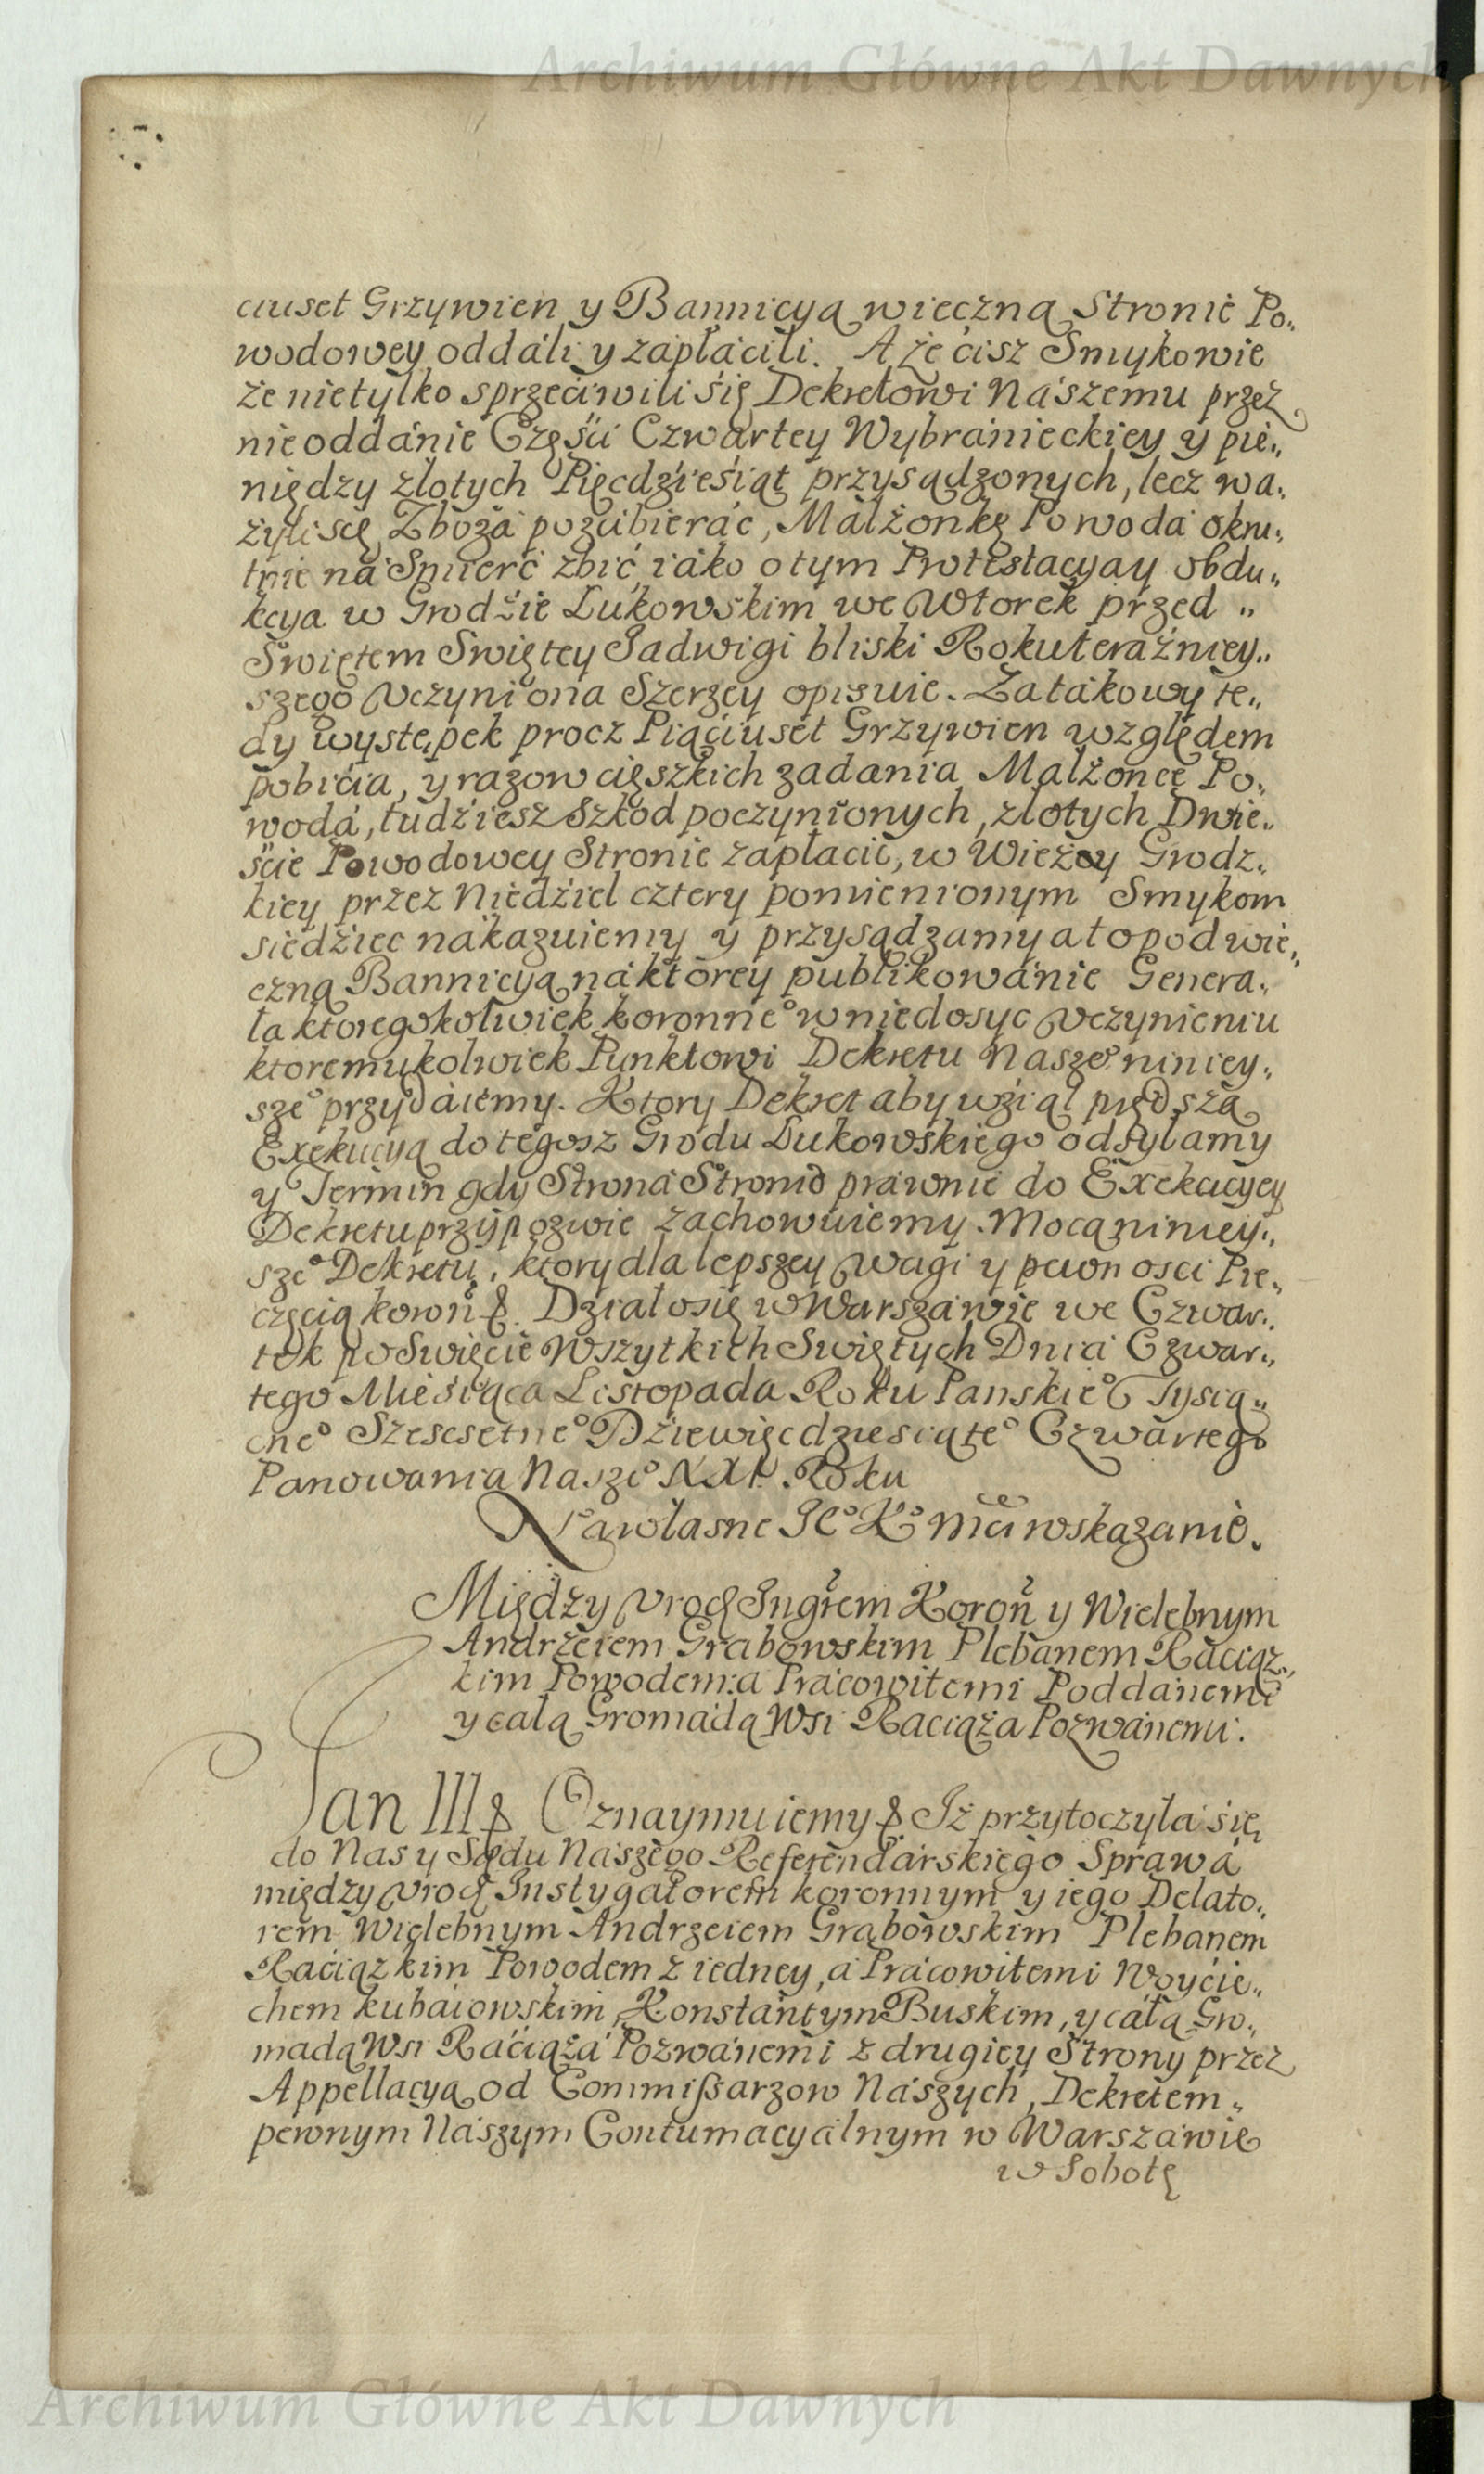 Archiwum Główne Akt Dawnych
ciuset Grzywien y Bannicyą wieczną Stronie Po„
wodowey oddáli y zápłácili. A że cisz Smykowie
że nietylko sprzeciwili się Dekretowi Nászemu przez
nieoddánie Częsci Czwartey Wybránieckiey y pie„
niędzy złotych Pięcdzieśiąt przysądzonych, lecz wa„
żyli się Zbożá pozábieráć, Małżonkę Powodá okru„
tnie ná Smierć zbić, iáko o tym Protestacya y obdu„
kcya w Grodzie Łukowskim we Wtorek przed „
Swiętem Swiętey Jadwigi bliski Roku teráźniey„
szego Vczyniona Szerzey opisuie. Zá tákowy te„
dy Występek procz Piąciuset Grzywien względem
pobicia, y rázow cięszkich zadania Małżonce Po„
wodá, tudziesz Szkod poczynionych, złotych Dwie„
ście Powodowey Stronie zapłácić, w Wieży Grodz„
kiey przez Niedziel cztery pomienionym Smykom
siedziec nákazuiemy y przysądzamy a to pod wie„
czną Bannicyą ná ktorey publikowánie Genera„
ła ktoregokolwiek koronne° w niedosyc Vczynieniu
ktoremukolwiek Punktowi Dekretu Nasze° niniey„
sze° przydáiemy. Ktory Dekret aby wziął prędszą
Exekucyą do tegosz Grodu Łukowskiego odsyłamy
y Termin gdy Strona Stronę práwnie do Exekucyey
Dekretu przypozwie záchowuiemy. Mocą niniey„
sze° Dekretu, ktory dla lepszey Wagi y pewnosci Pie„
częcią koroñ &. Działo się w Warszáwie we Czwar„
tek po Swięcie Wszytkich Swiętych Dnia Czwar„
tego Miesiąca Listopada Roku Panskie° Tysią„
cne° Szescsetne° Dziewięcdziesiąte° Czwartego
Panowania Nasze° XXI. Roku
Na własne Je° K° Mći wskazanie.
Między Vrodz Jngrem Koroñ y Wielebnym
Andrzeiem Grabowskim Plebanem Raciąz„
kim Powodem: a Prácowitemi Poddánemi
y całą Gromádą Wsi Raciąża Pozwánemi.
Jan III & Oznaymuiemy &. Jż przytoczyła się
do Nas y Sądu Nászego Referendarskiego Sprawá
między Vrodz Instygatorem koronnym y iego Delato„
rem Wielebnym Andrzeiem Grabowskim Plebanem
Raciązkim Powodem z iedney, á Prácowitemi Woycie„
chem kubaiowskim, Konstántym Buskim, y całą Gro„
madą Wsi Ráciążá Pozwánemi z drugiey Strony przez
Appellacyą od Commißarzow Nászych, Dekretem „
pewnym Nászym Contumacyálnym w Warszáwie
w Sobotę
Archiwum Główne Akt Dawnych